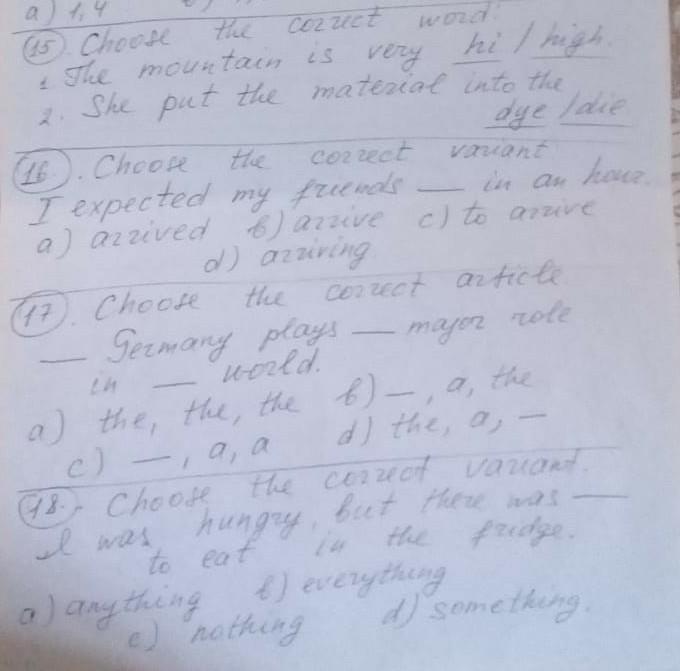 a) 1, 4
15. Choose the correct word:
1 The mountain is very hi / high.
2. She put the material into the
dye / die
16. Choose the correct variant
I expected my friends — in an hour.
a) arrived b) arrive c) to arrive
d) arriving
17. Choose the correct article
— Germany plays — major role
in — world.
a) the, the, the b) –, a, the
c) –, a, a d) the, a, –
18. Choose the correct variant.
I was hungry, but there was —
to eat in the fridge.
a) anything b) everything
c) nothing d) something.